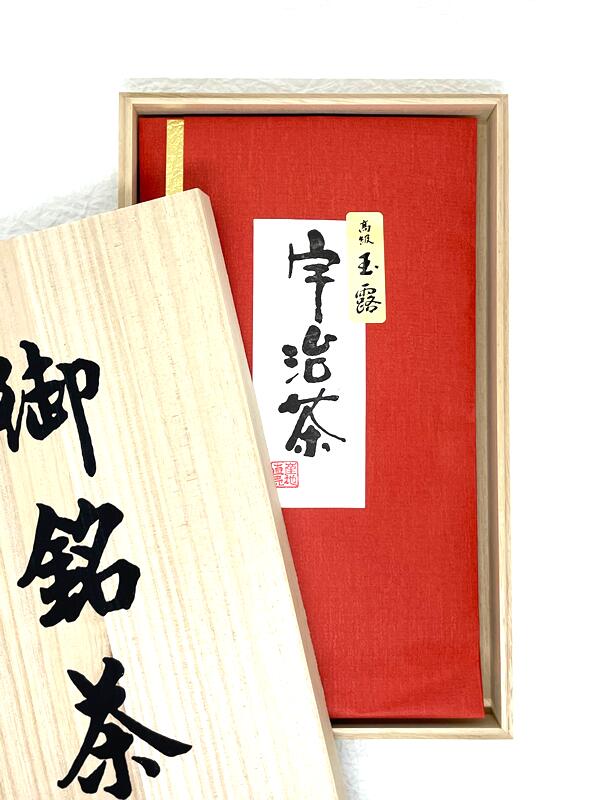 高級 玉露
宇治茶
産地直送
御銘茶